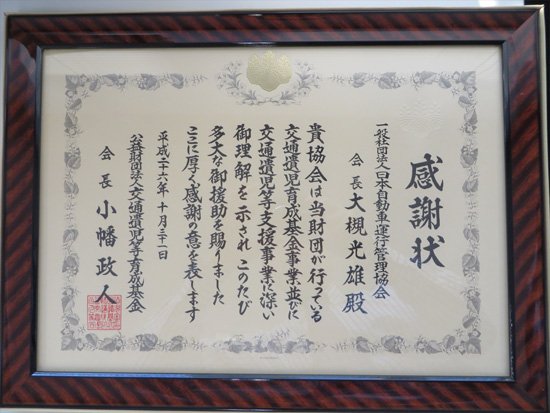 感謝状
一般社団法人日本自動車運行管理協会
会長 大槻光雄殿
貴協会は当財団が行っている
交通遺児育成基金事業並びに
交通遺児等支援事業に深い
御理解を示され このたび
多大な御援助を賜りました
ここに厚く感謝の意を表します
平成二十六年十月三十一日
公益財団法人交通遺児等育成基金
会長 小幡政人